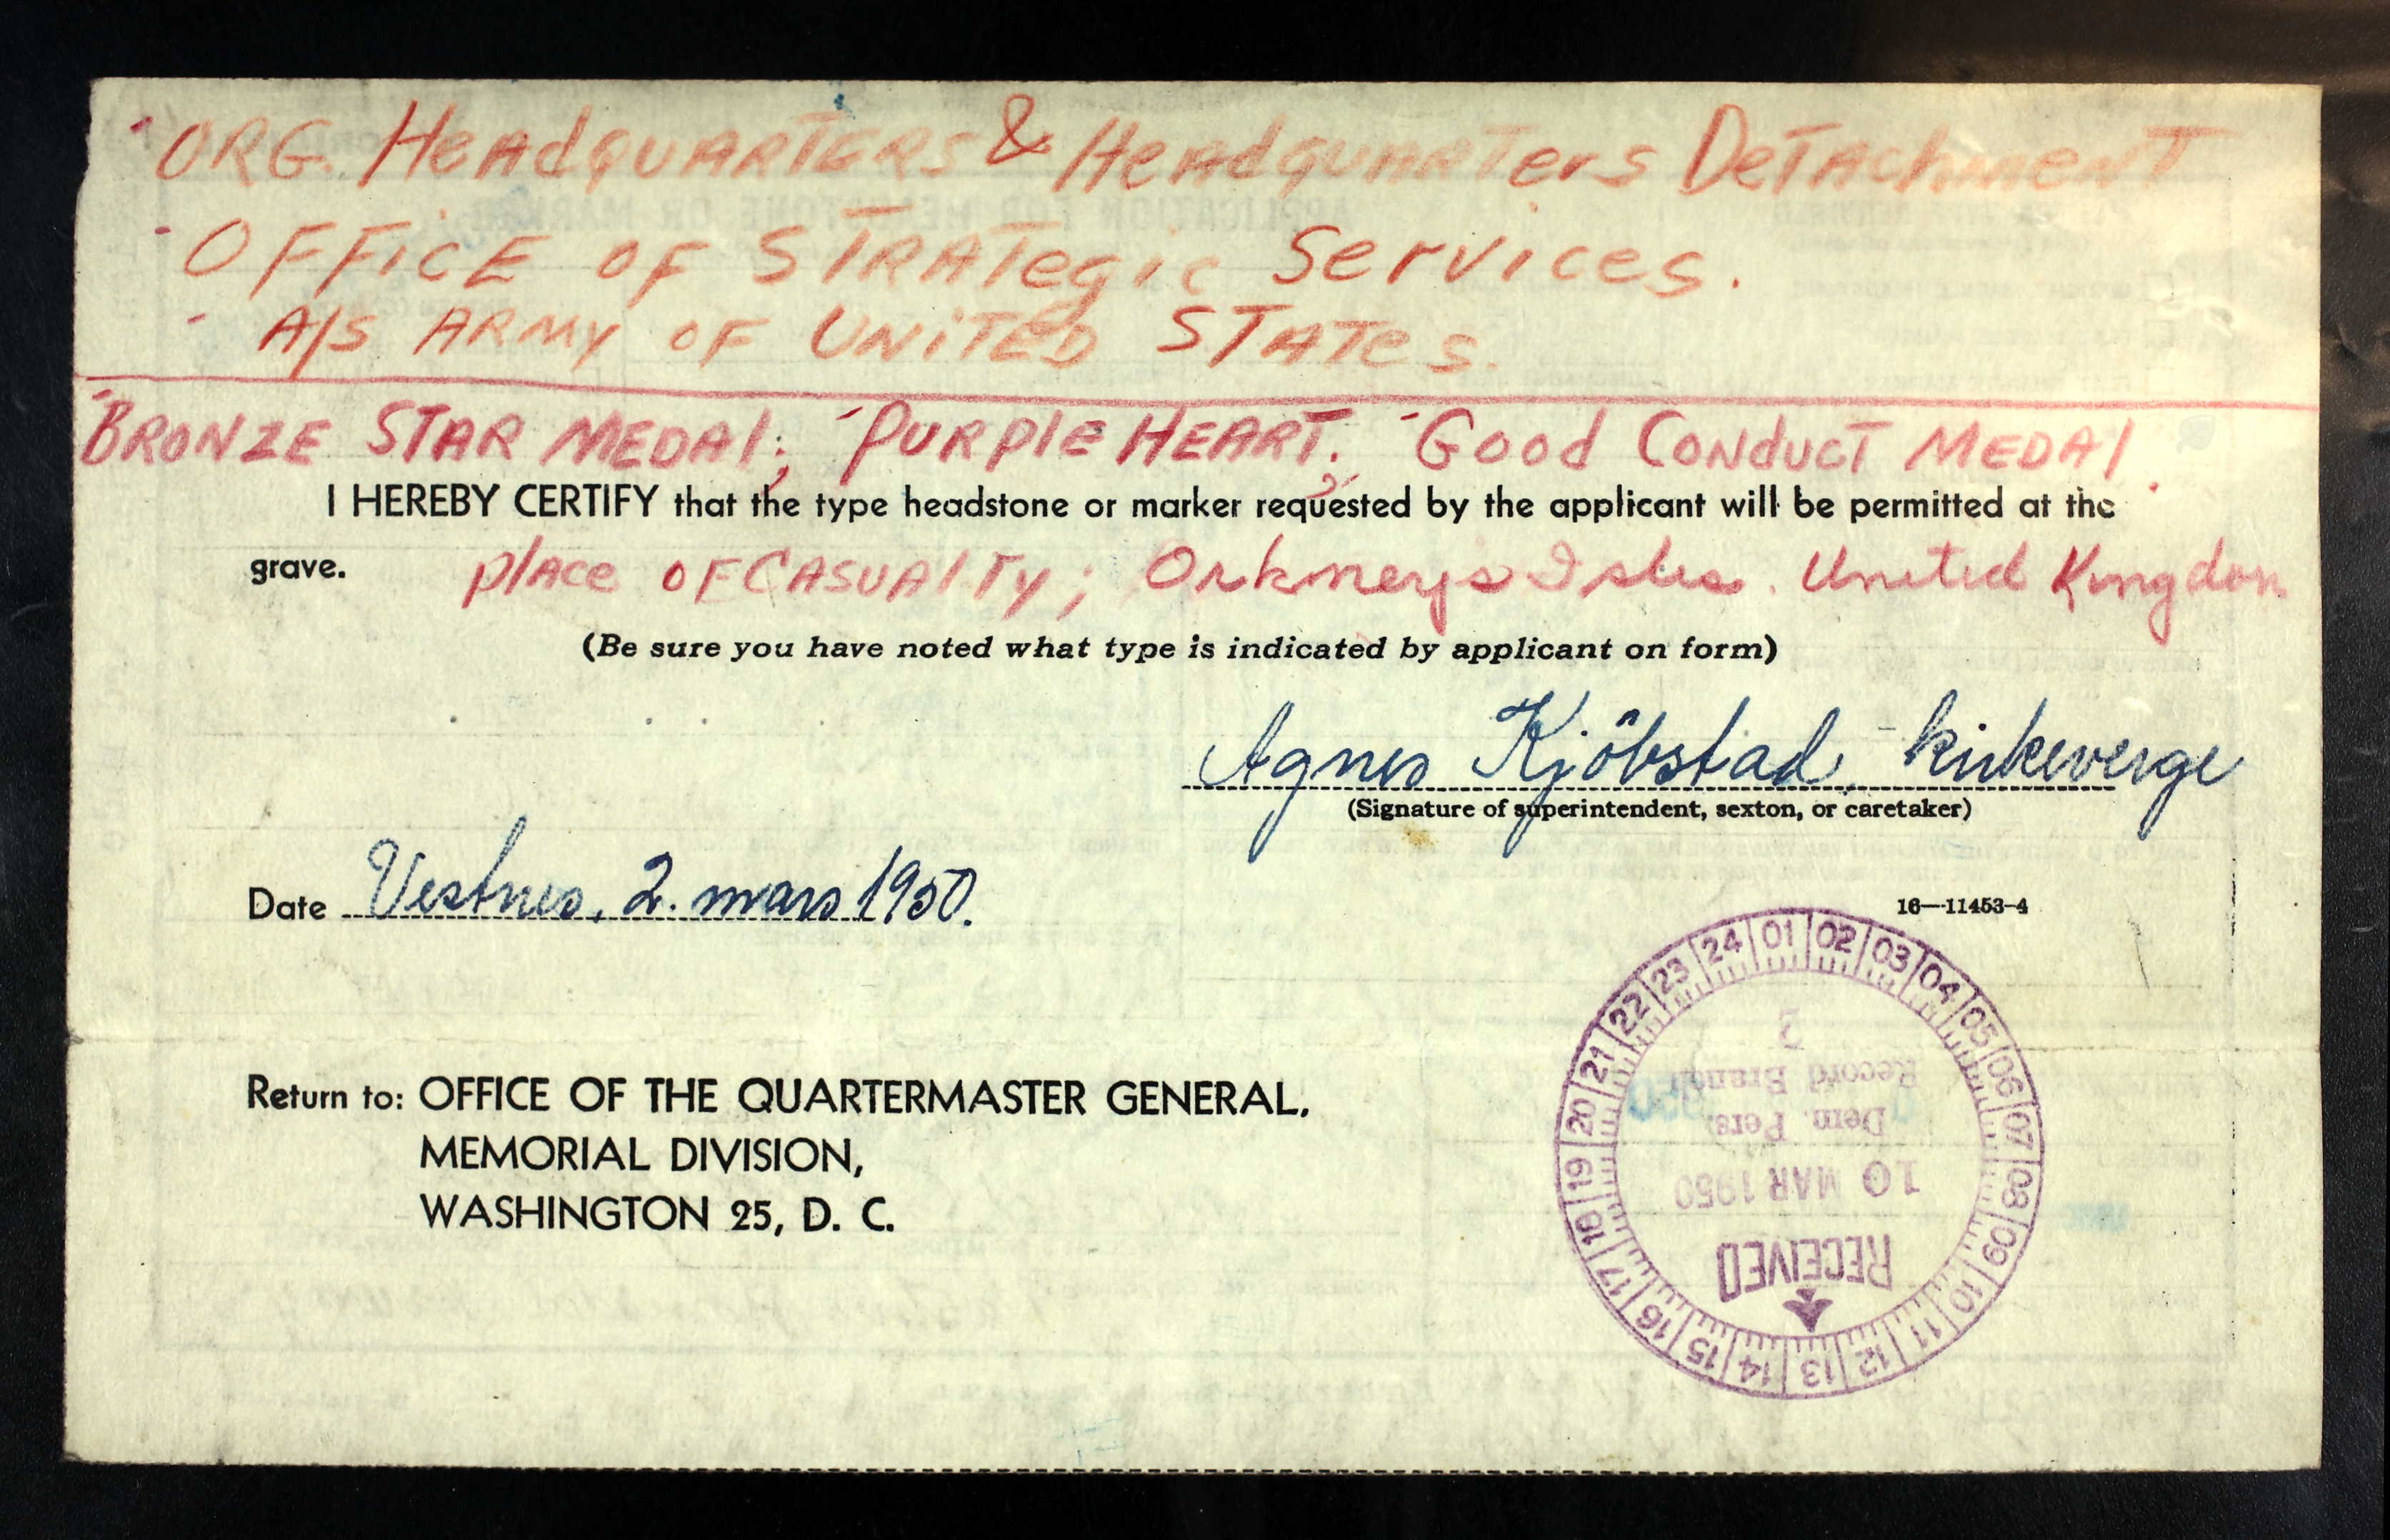 ORG. HEADQUARTERS & HEADQUARTERS DETACHMENT
OFFICE OF STRATEGIC SERVICES.
A/S ARMY OF UNITED STATES.
BRONZE STAR MEDAL; PURPLE HEART; GOOD CONDUCT MEDAL.
I HEREBY CERTIFY that the type headstone or marker requested by the applicant will be permitted at the
grave. place of Casualty; Orkneys Isles. United Kingdom
(Be sure you have noted what type is indicated by applicant on form)
Agnes Kjöbstad, kirkeverge
(Signature of superintendent, sexton, or caretaker)
Date Vestnes, 2. mars 1950.
16—11453-4
Return to: OFFICE OF THE QUARTERMASTER GENERAL,
MEMORIAL DIVISION,
WASHINGTON 25, D. C.
01 02 03 04 05 06 07 08 09 10 11 12 13 14 15 16 17 18 19 20 21 22 23 24
RECEIVED
10 MAR 1950
Dem. Pers.
Record Branch
2